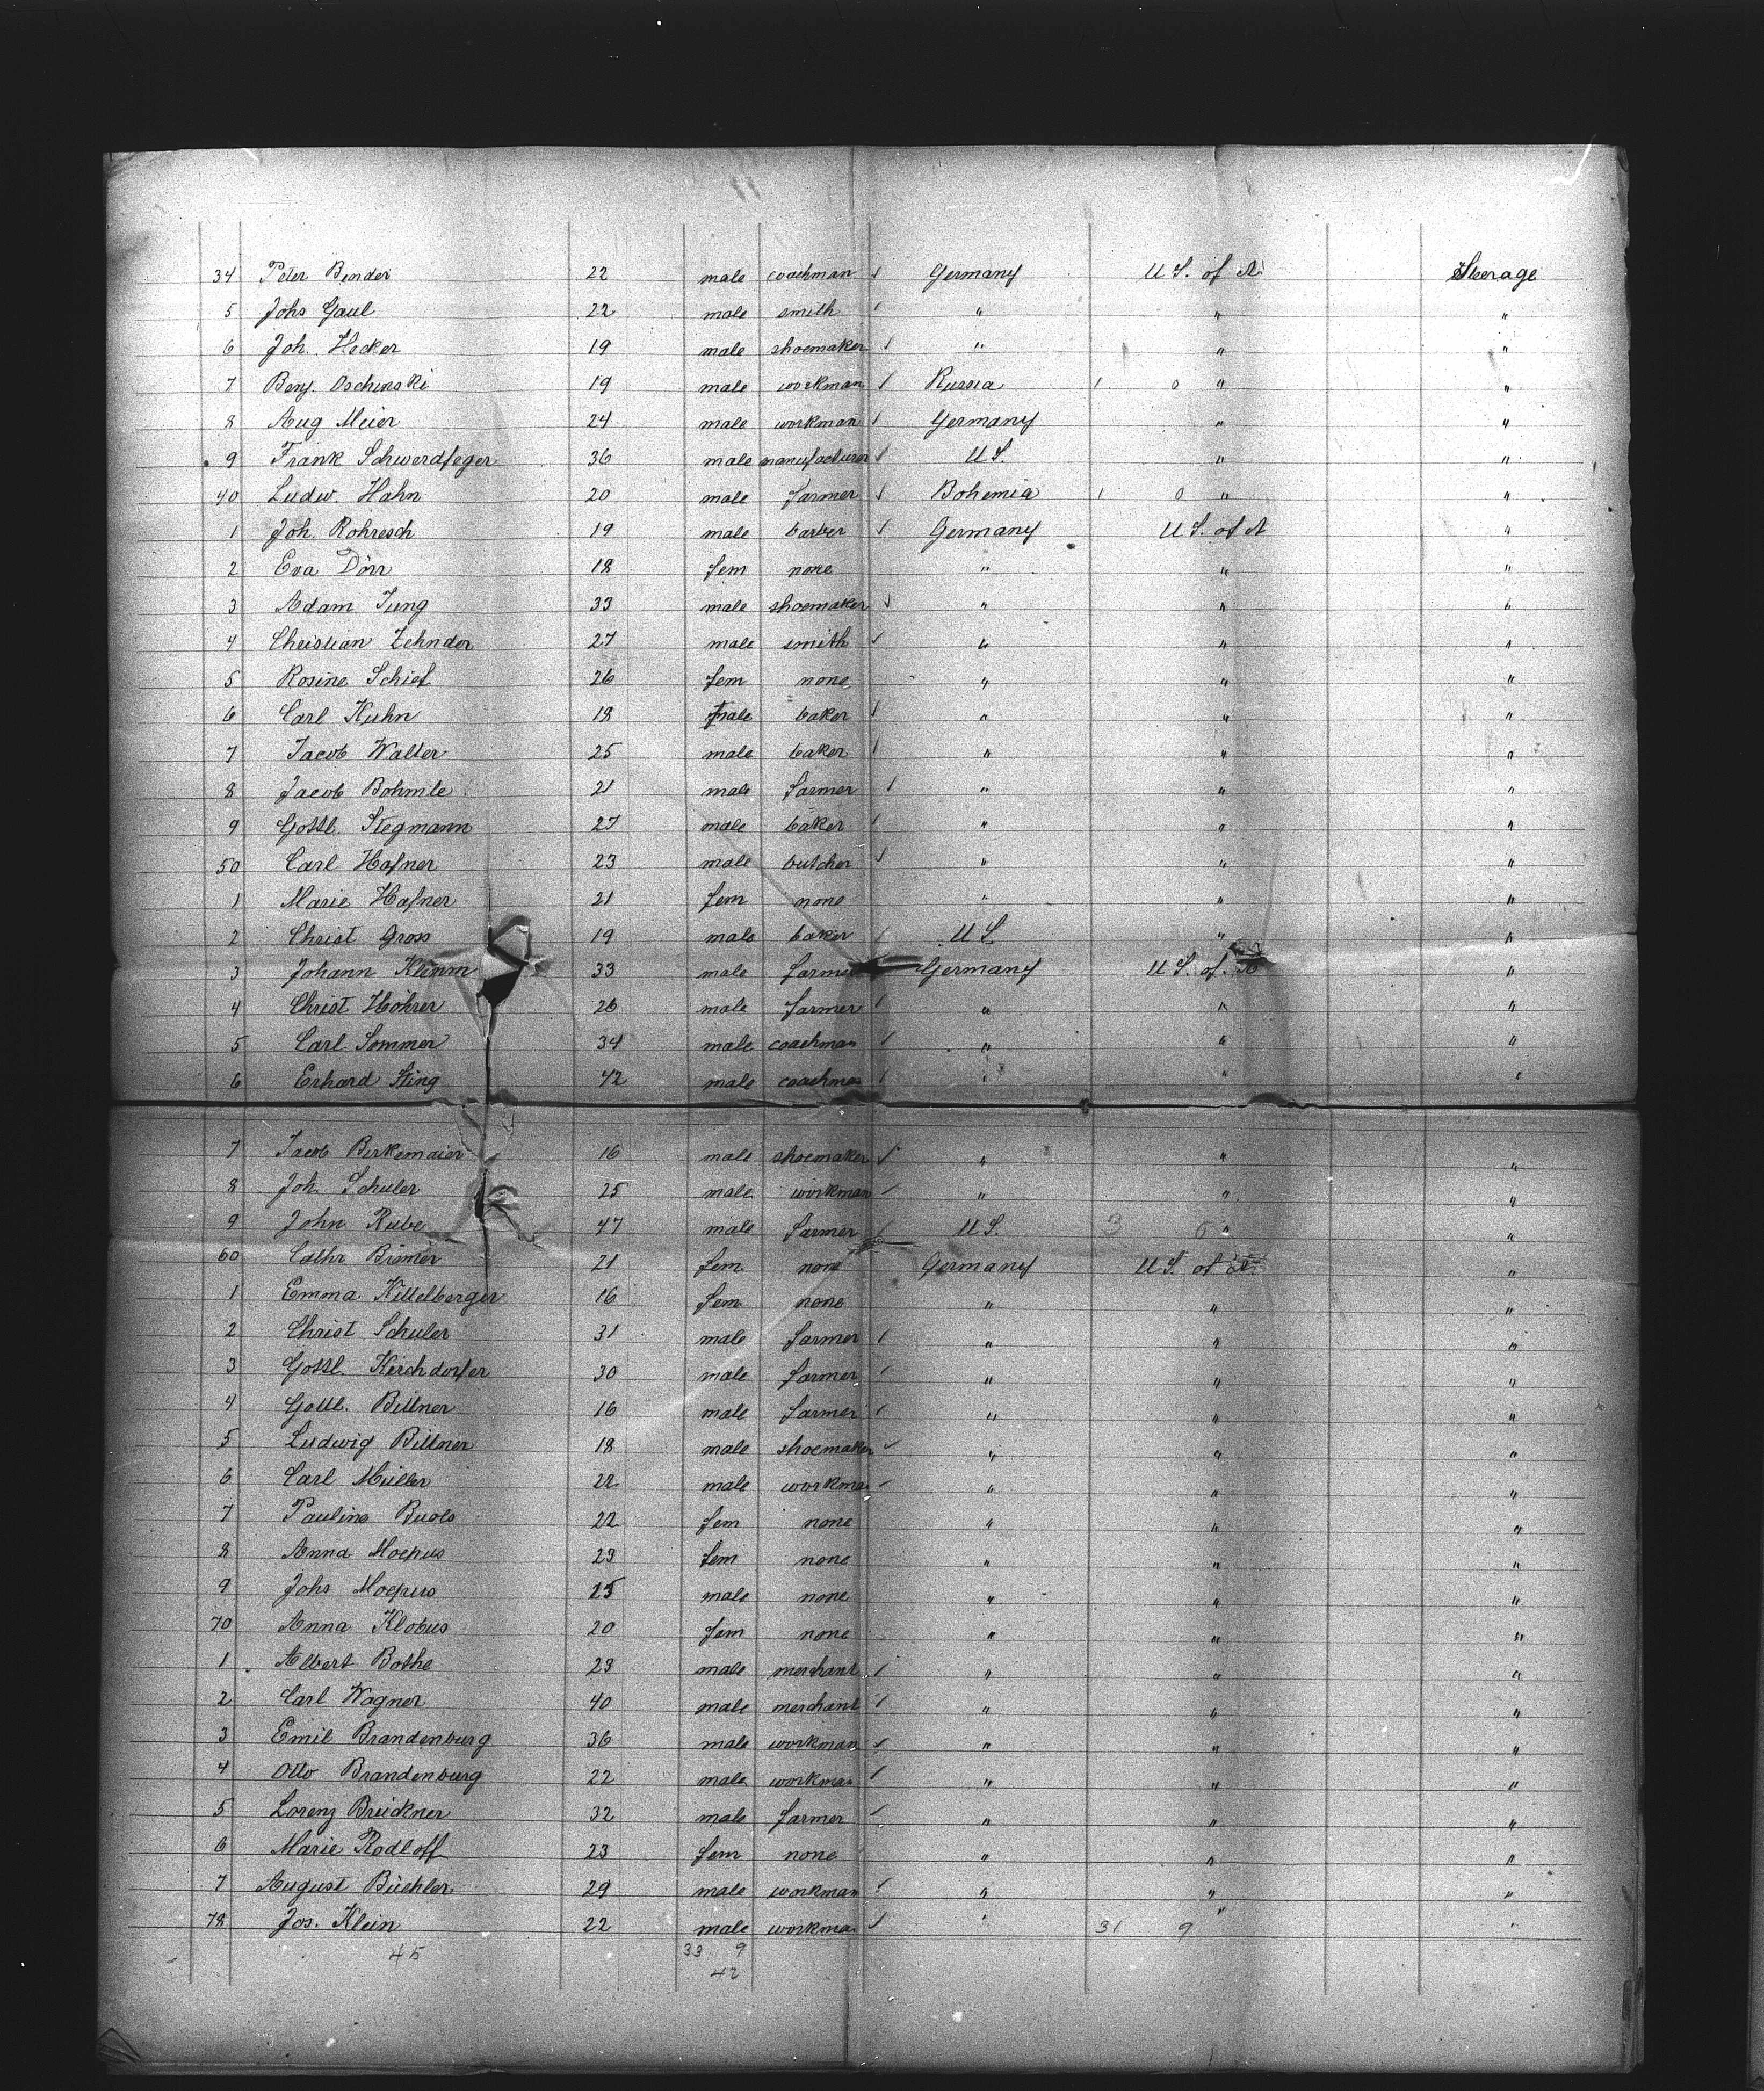 34 Peter Bender 22 male coachman ✓ Germany U.S. of A. Steerage
5 Johs Gaul 22 male smith ✓ " " "
6 Joh. Hecker 19 male shoemaker ✓ " " "
7 Benj. Oschinski 19 male workman ✓ Russia 1 0 " "
8 Aug Meier 24 male workman ✓ Germany " "
9 Frank Schwerdfeger 36 male manufacturer ✓ U.S. " "
40 Ludw. Hahn 20 male farmer ✓ Bohemia 1 0 " "
1 Joh. Rohresch 19 male barber ✓ Germany U.S. of A "
2 Eva Dörr 18 fem none " " "
3 Adam Jung 33 male shoemaker ✓ " " "
4 Christian Zehnder 27 male smith ✓ " " "
5 Rosine Schief 26 fem none " " "
6 Carl Kuhn 18 male baker ✓ " " "
7 Jacob Walter 25 male baker ✓ " " "
8 Jacob Bohmle 21 male farmer ✓ " " "
9 Gottl. Stegmann 27 male baker ✓ " " "
50 Carl Hafner 23 male butcher ✓ " " "
1 Marie Hafner 21 fem none " " "
2 Christ Gross 19 male baker ✓ U.S. " "
3 Johann Klemm 33 male farmer Germany U.S. of A "
4 Christ Höhrer 26 male farmer ✓ " " "
5 Carl Sommer 34 male coachman ✓ " " "
6 Erhard Sting 42 male coachman ✓ " " "
7 Jacob Birkemaier 16 male shoemaker ✓ " " "
8 Joh. Schuler 25 male workman ✓ " " "
9 John Rube 47 male farmer ✓ U.S. 3 0 " "
60 Cathr Bismer 21 fem none Germany U.S. of A. "
1 Emma Kittelberger 16 fem none " " "
2 Christ Schuler 31 male farmer ✓ " " "
3 Gottl. Kirchdorfer 30 male farmer ✓ " " "
4 Gottl. Bittner 16 male farmer ✓ " " "
5 Ludwig Bittner 18 male shoemaker ✓ " " "
6 Carl Müller 22 male workman ✓ " " "
7 Pauline 22 fem none " " "
8 Anna Moepus 23 fem none " " "
9 Johs Moepus 25 male none " " "
70 Anna Klobus 20 fem none " " "
1 Albert Bothe 23 male merchant ✓ " " "
2 Carl Wagner 40 male merchant ✓ " " "
3 Emil Brandenburg 36 male workman ✓ " " "
4 Otto Brandenburg 22 male workman ✓ " " "
5 Lorenz Brückner 32 male farmer ✓ " " "
6 Marie Rodloff 23 fem none " " "
7 August Büehler 29 male workman ✓ " " "
78 Jos. Klein 22 male workman ✓ " 31 9 " "
45 33 9
42